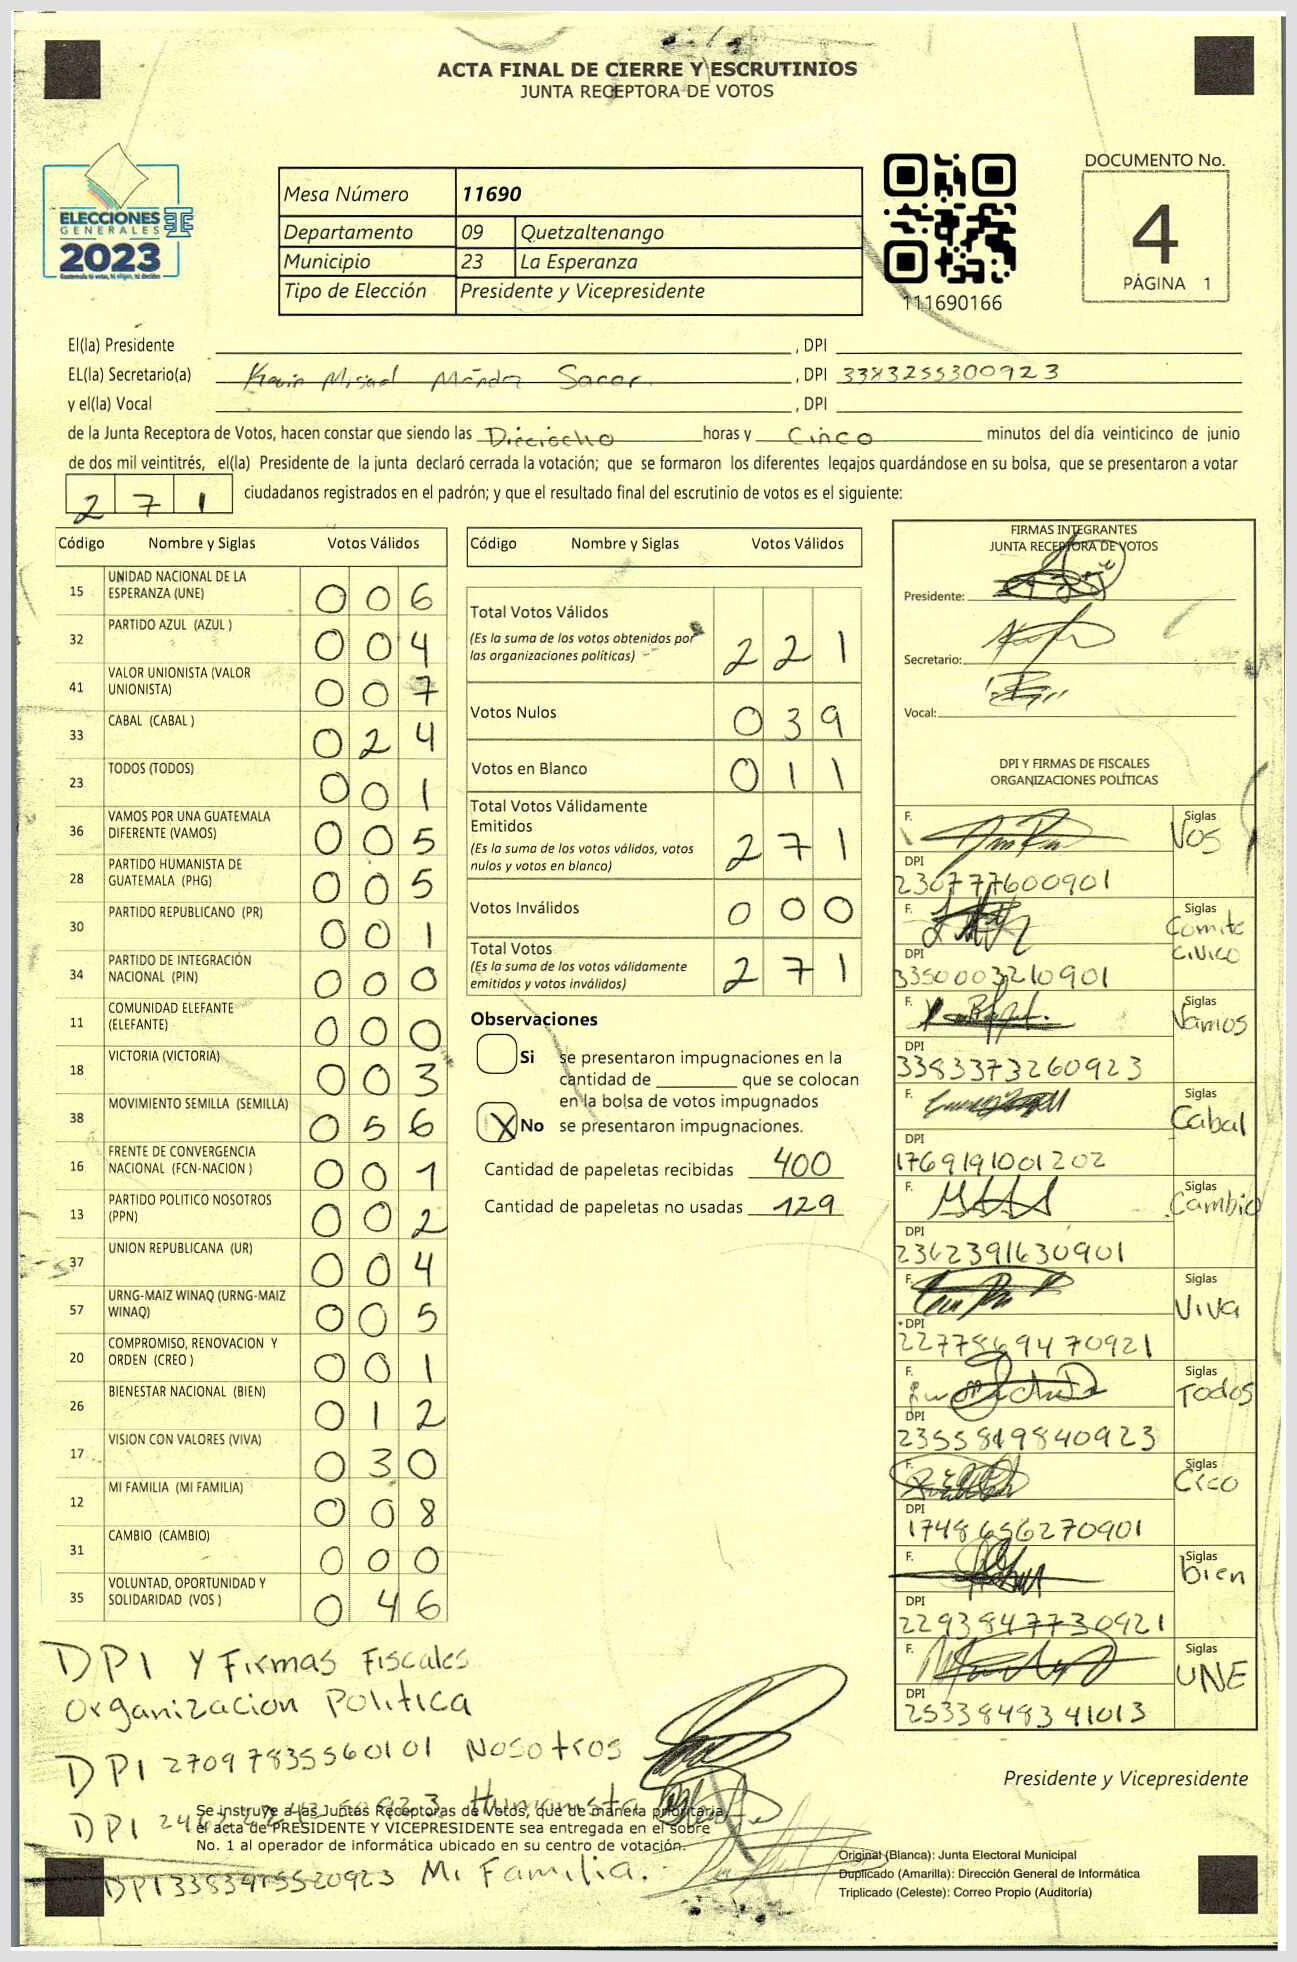 ACTA FINAL DE CIERRE Y ESCRUTINIOS
JUNTA RECEPTORA DE VOTOS
ELECCIONES
GENERALES
2023
Mesa Número 11690
Departamento 09 Quetzaltenango
Municipio 23 La Esperanza
Tipo de Elección Presidente y Vicepresidente
111690166
DOCUMENTO No.
4
PÁGINA 1
El(la) Presidente , DPI
EL(la) Secretario(a) Kevin Misael Méndez Sacor , DPI 3383255300923
y el(la) Vocal , DPI
de la Junta Receptora de Votos, hacen constar que siendo las Dieciocho horas y Cinco minutos del día veinticinco de junio
de dos mil veintitrés, el(la) Presidente de la junta declaró cerrada la votación; que se formaron los diferentes legajos guardándose en su bolsa, que se presentaron a votar
2 7 1 ciudadanos registrados en el padrón; y que el resultado final del escrutinio de votos es el siguiente:
Código Nombre y Siglas Votos Válidos
15 UNIDAD NACIONAL DE LA ESPERANZA (UNE) 0 0 6
32 PARTIDO AZUL (AZUL ) 0 0 4
41 VALOR UNIONISTA (VALOR UNIONISTA) 0 0 7
33 CABAL (CABAL ) 0 2 4
23 TODOS (TODOS) 0 0 1
36 VAMOS POR UNA GUATEMALA DIFERENTE (VAMOS) 0 0 5
28 PARTIDO HUMANISTA DE GUATEMALA (PHG) 0 0 5
30 PARTIDO REPUBLICANO (PR) 0 0 1
34 PARTIDO DE INTEGRACIÓN NACIONAL (PIN) 0 0 0
11 COMUNIDAD ELEFANTE (ELEFANTE) 0 0 0
18 VICTORIA (VICTORIA) 0 0 3
38 MOVIMIENTO SEMILLA (SEMILLA) 0 5 6
16 FRENTE DE CONVERGENCIA NACIONAL (FCN-NACION ) 0 0 1
13 PARTIDO POLITICO NOSOTROS (PPN) 0 0 2
37 UNION REPUBLICANA (UR) 0 0 4
57 URNG-MAIZ WINAQ (URNG-MAIZ WINAQ) 0 0 5
20 COMPROMISO, RENOVACION Y ORDEN (CREO ) 0 0 1
26 BIENESTAR NACIONAL (BIEN) 0 1 2
17 VISION CON VALORES (VIVA) 0 3 0
12 MI FAMILIA (MI FAMILIA) 0 0 8
31 CAMBIO (CAMBIO) 0 0 0
35 VOLUNTAD, OPORTUNIDAD Y SOLIDARIDAD (VOS ) 0 4 6
Código Nombre y Siglas Votos Válidos
Total Votos Válidos 2 2 1
(Es la suma de los votos obtenidos por
las organizaciones políticas)
Votos Nulos 0 3 9
Votos en Blanco 0 1 1
Total Votos Válidamente
Emitidos 2 7 1
(Es la suma de los votos válidos, votos
nulos y votos en blanco)
Votos Inválidos 0 0 0
Total Votos 2 7 1
(Es la suma de los votos válidamente
emitidos y votos inválidos)
Observaciones
Si se presentaron impugnaciones en la
cantidad de ________ que se colocan
en la bolsa de votos impugnados
X No se presentaron impugnaciones.
Cantidad de papeletas recibidas 400
Cantidad de papeletas no usadas 129
FIRMAS INTEGRANTES
JUNTA RECEPTORA DE VOTOS
Presidente:
Secretario:
Vocal:
DPI Y FIRMAS DE FISCALES
ORGANIZACIONES POLÍTICAS
F. Siglas
VOS
DPI
230777600901
F. Siglas
Comite
Civico
DPI
3350003210901
F. Siglas
Vamos
DPI
3383373260923
F. Siglas
Cabal
DPI
1769191001202
F. Siglas
Cambio
DPI
2362391630901
F. Siglas
Viva
DPI
2277869470921
F. Siglas
Todos
DPI
2355819840923
F. Siglas
Cico
DPI
1748656270901
F. Siglas
bien
DPI
2293847730921
F. Siglas
UNE
DPI
2533848341013
DPI Y Firmas Fiscales
Organizacion Politica
DPI 27097835560101 Nosotros
DPI Humanista
DPI 3383415520923 Mi Familia.
Se instruye a las Juntas Receptoras de Votos, que de manera prioritaria
el acta de PRESIDENTE Y VICEPRESIDENTE sea entregada en el sobre
No. 1 al operador de informática ubicado en su centro de votación.
Presidente y Vicepresidente
Original (Blanca): Junta Electoral Municipal
Duplicado (Amarilla): Dirección General de Informática
Triplicado (Celeste): Correo Propio (Auditoría)